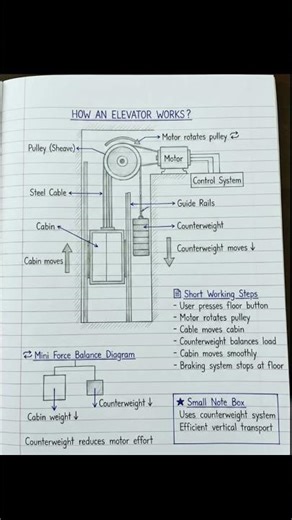 HOW AN ELEVATOR WORKS?
Motor rotates pulley
Pulley (Sheave)
Motor
Control System
Steel Cable
Guide Rails
Cabin
Counterweight
Cabin moves
Counterweight moves ↓
Short Working Steps
- User presses floor button
- Motor rotates pulley
- Cable moves cabin
- Counterweight balances load
- Cabin moves smoothly
- Braking system stops at floor
Mini Force Balance Diagram
Counterweight ↓
Cabin weight ↓
Counterweight reduces motor effort
★ Small Note Box
Uses counterweight system
Efficient vertical transport